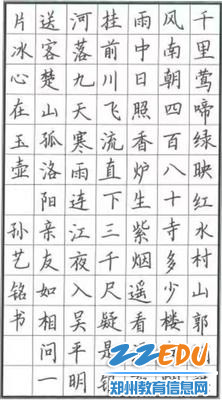 千里莺啼绿映红水村山郭
风南朝四百八十寺多少楼
雨中日照香炉生紫烟遥看
挂前川飞流直下三千尺疑是银
河落九天寒雨连江夜入吴平明
送客楚山孤洛阳亲友如相问一
片冰心在玉壶 孙艺铭书
ZZEDU
郑州教育信息网